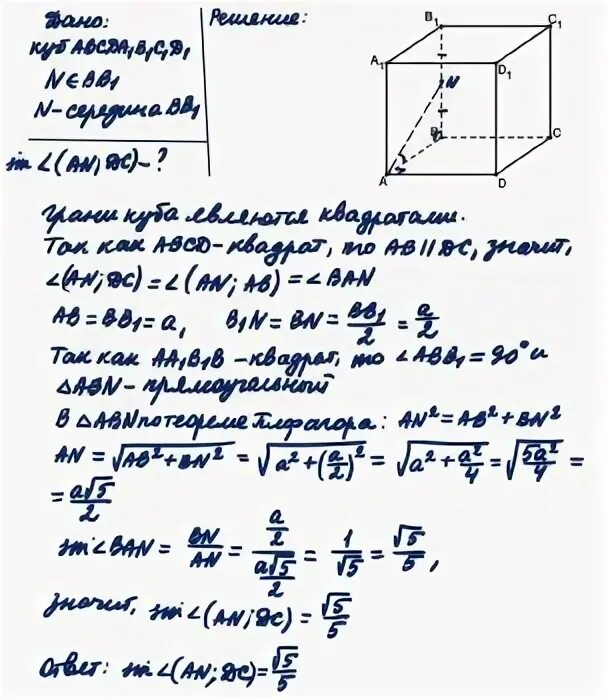 Дано:
куб ABCDA₁B₁C₁D₁
N ∈ BB₁
N - середина BB₁
sin ∠(AN; DC) - ?
Решение:
B₁ C₁
A₁ D₁
N
B C
A D
Грани куба являются квадратами.
Так как ABCD - квадрат, то AB ∥ DC, значит,
∠(AN; DC) = ∠(AN; AB) = ∠BAN
AB = BB₁ = a, B₁N = BN = BB₁/2 = a/2
Так как AA₁B₁B - квадрат, то ∠ABB₁ = 90° и
△ABN - прямоугольный
В △ABN по теореме Пифагора: AN² = AB² + BN²
AN = √(AB² + BN²) = √(a² + (a/2)²) = √(a² + a²/4) = √(5a²/4) =
= a√5/2
sin ∠BAN = BN/AN = (a/2)/(a√5/2) = 1/√5 = √5/5,
значит, sin ∠(AN; DC) = √5/5
Ответ: sin ∠(AN; DC) = √5/5